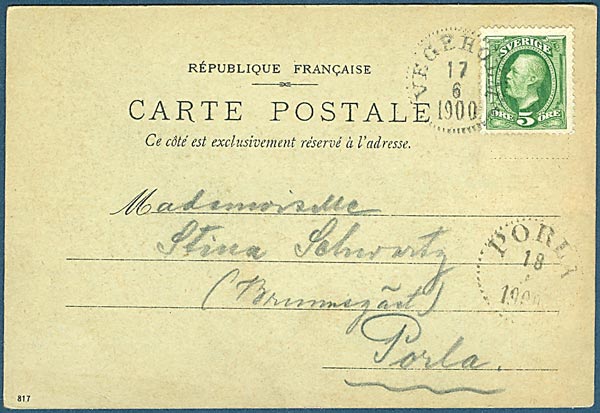 VEGEHOLM
17
6
1900
SVERIGE
ÖRE 5 ÖRE
RÉPUBLIQUE FRANÇAISE
CARTE POSTALE
Ce côté est exclusivement réservé à l'adresse.
Mademoiselle
Stina Schwartz
(Brunnsgäst)
Porla.
PORLA
18
1900
817